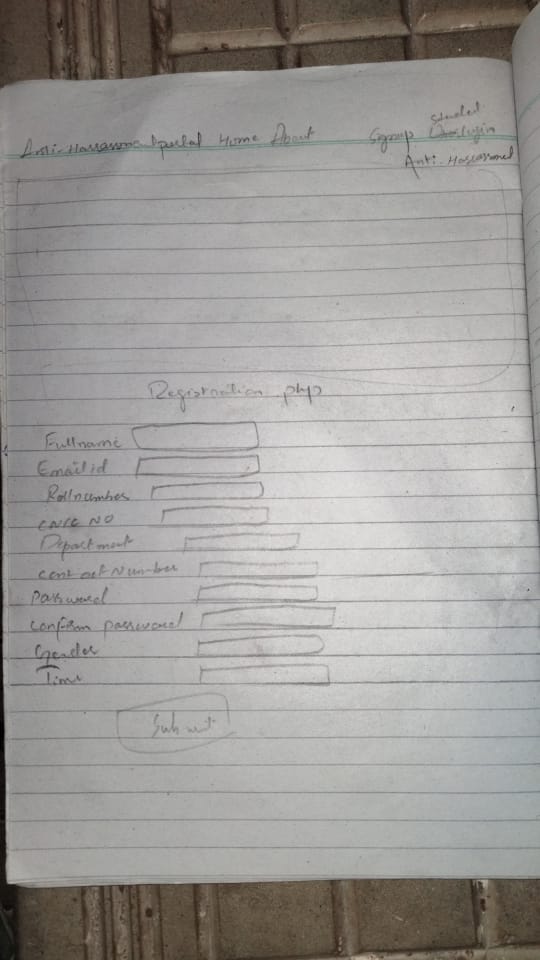 Anti-Harassment portal Home About Signup Student Login
Anti-Harassment
Registration.php
Fullname
Email id
Rollnumber
CNIC NO
Department
contact Number
Password
Confirm password
Gender
Time
Submit